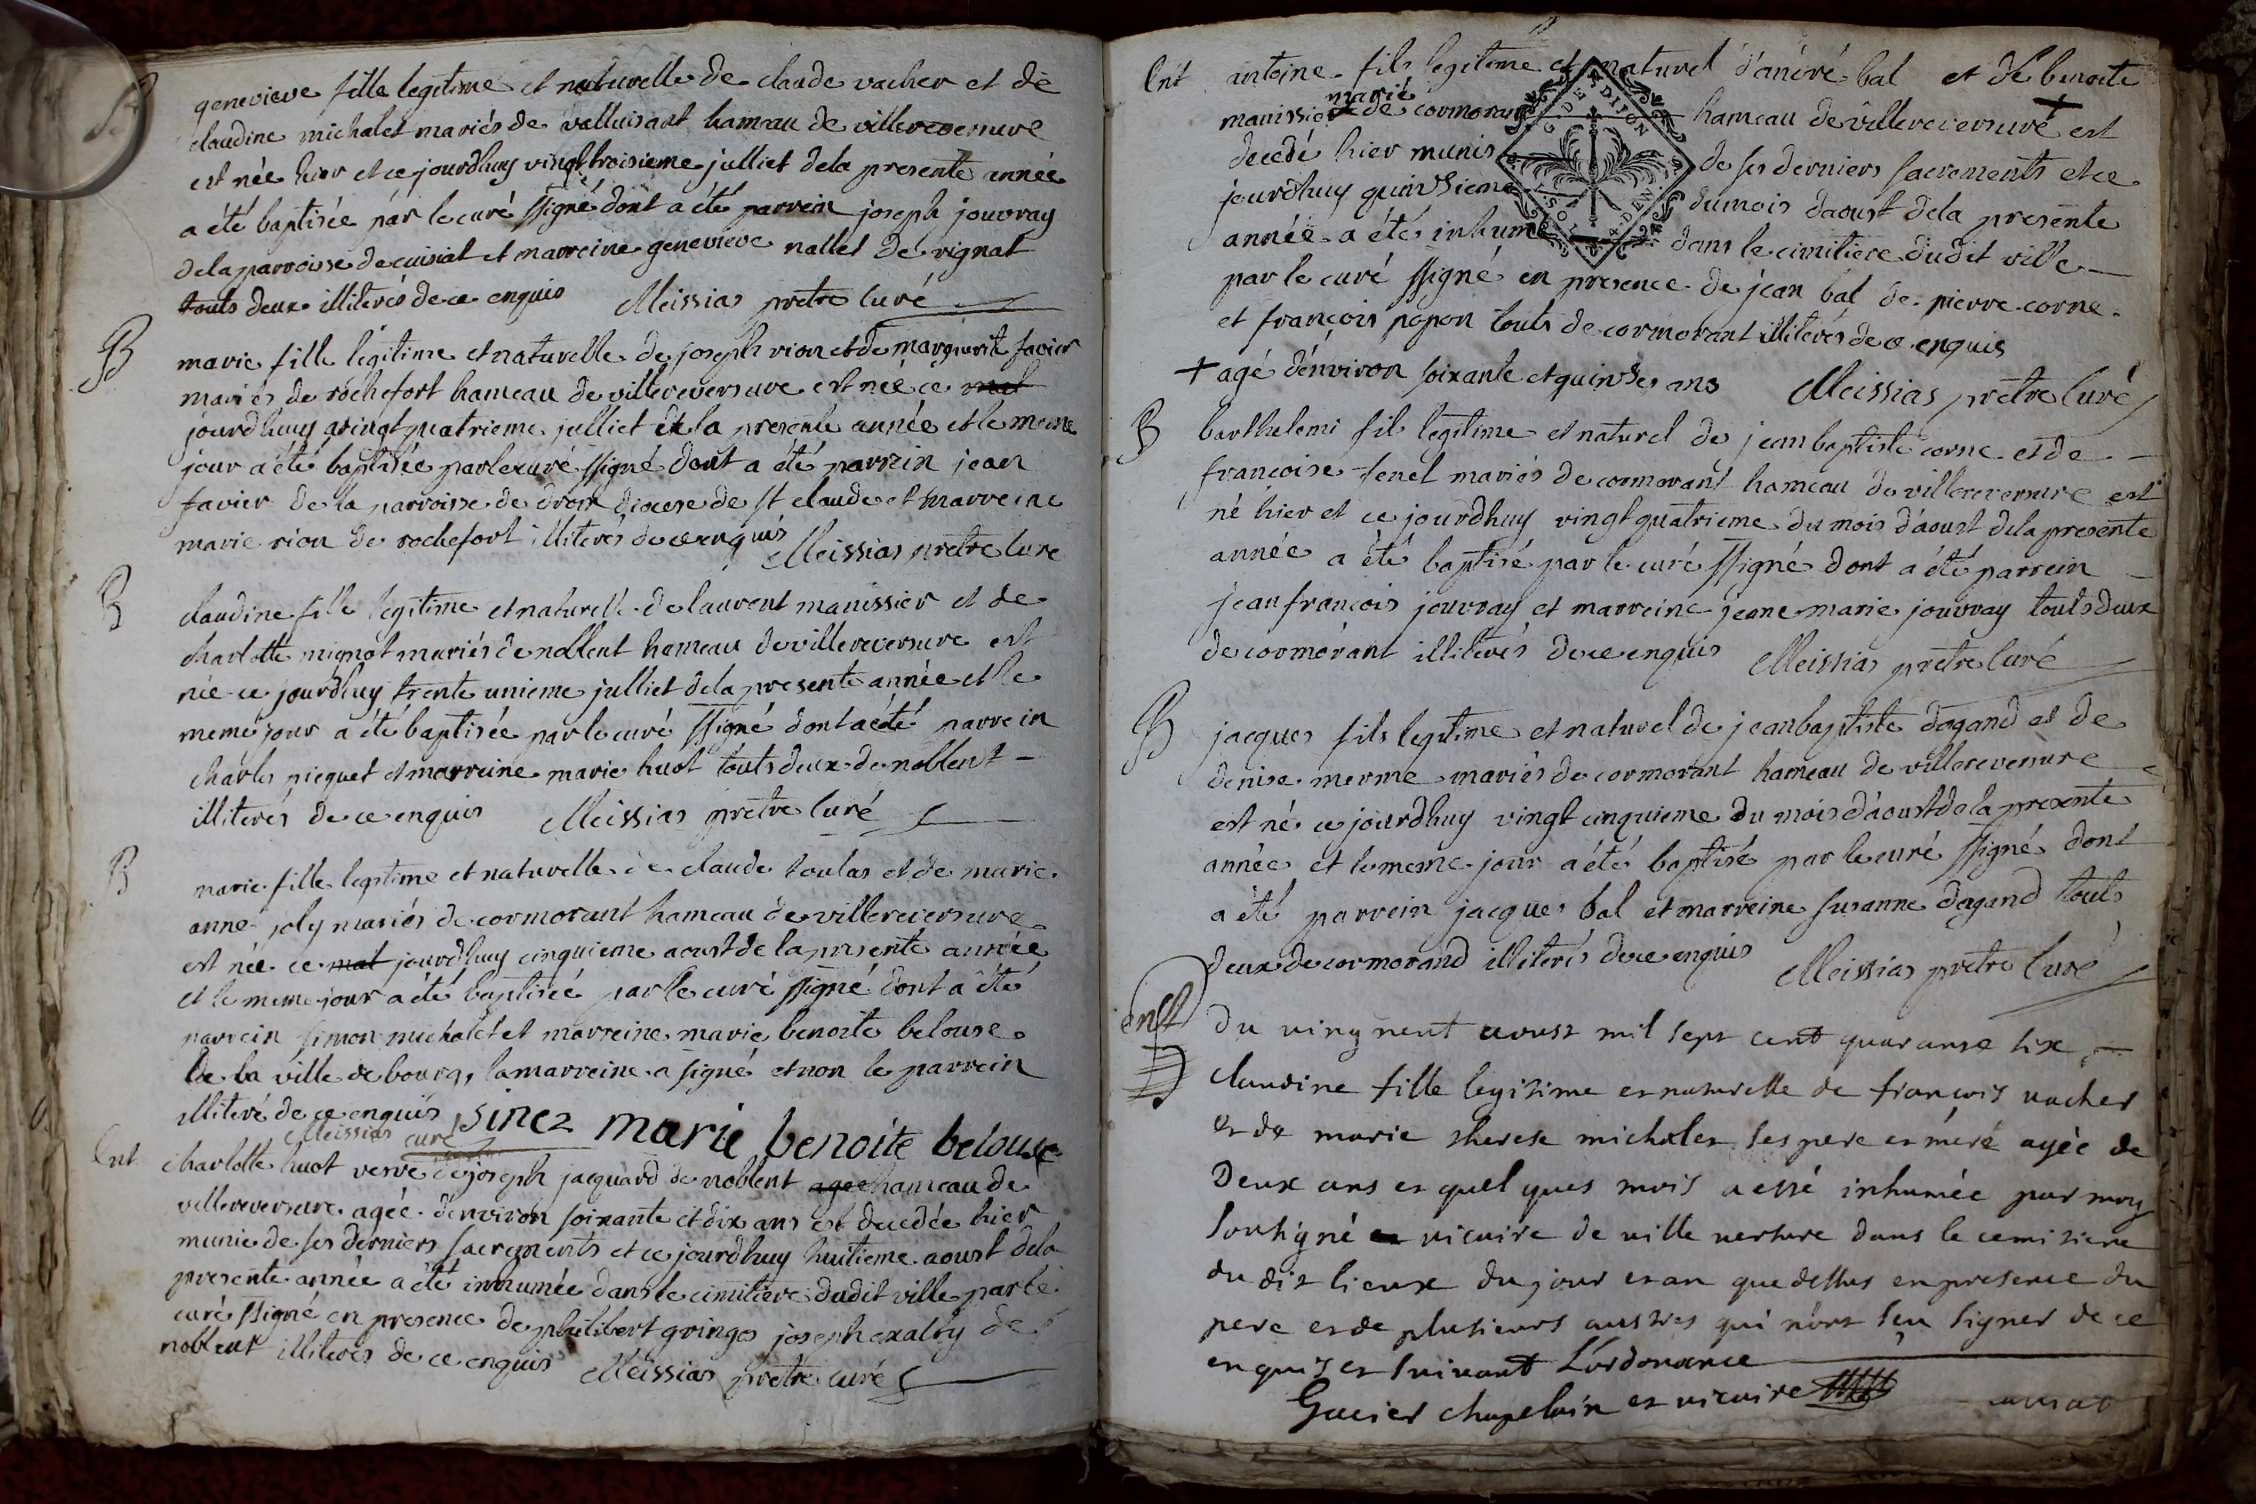 B
genevieve fille legitime et naturelle de claude vacher et de
claudine michalet mariés de valluisant hameau de villereversure
est née hier et ce jourdhuy vingt troisieme julliet dela presente année
a été baptisée par le curé ssigné dont a été parrein joseph jouvray
dela parroisse de cuisiat et marreine genevieve nallet de vignat
touts deux illiterés de ce enquis Meissias pretre curé
B
marie fille legitime et naturelle de joseph rion et de marguerite favier
mariés de rochefort hameau de villereversure est née ce mat
jourdhuy vingt quatrieme julliet de la presente année et le meme
jour a été baptisée par le curé ssigné dont a été parrein jean
favier de la parroisse de diocese de st claude et marreine
marie rion de rochefort illiterés de ce enquis Meissias pretre curé
B
claudine fille legitime et naturelle de laurent manissier et de
charlotte mignot mariés de noblent hameau de villereversure est
née ce jourdhuy trente unieme julliet dela presente année et le
meme jour a été baptisée par le curé ssigné dont a été parrein
charles picquet et marreine marie huot touts deux de noblent
illiterés de ce enquis Meissias pretre curé
B
marie fille legitime et naturelle de claude toulas et de marie
anne joly mariés de cormorant hameau de villereversure
est née ce mat jourdhuy cinquieme aoust de la presente année
et le meme jour a été baptisée par le curé ssigné dont a été
parrein simon michalet et marreine marie benoite belouse
de la ville de bourg, la marreine a signé et non le parrein
illiteré de ce enquis sinez marie benoite belouse
Meissias curé
Ent charlotte huot veuve de joseph jacquard de noblent agee hameau de
villereversure agée d'environ soixante et dix ans est decedée hier
munie de ses derniers sacrements et ce jourdhuy huitieme aoust dela
presente année a été inhumée dans le cimitiere dudit ville par le
curé ssigné en presence de philibert gringoz joseph de
noblent illiterés de ce enquis Meissias pretre curé
Ent antoine fils legitime et naturel d'andré bal et de benoite
manissier marié de cormorant hameau de villereversure + est
decedé hier munis de ses derniers sacrements et ce
jourdhuy quinsieme du mois d'aoust dela presente
année a été inhumé dans le cimitiere dudit ville
par le curé ssigné en presence de jean bal de pierre corne
et françois popon touts de cormorant illiterés de ce enquis
+ agé d'environ soixante et quinse ans Meissias pretre curé
G. DE DIJON
SOLS 4 DEN.
B
barthelemi fils legitime et naturel de jean baptiste corne et de
francoise tenet mariés de cormorant hameau de villereversure est
né hier et ce jourdhuy vingt quatrieme du mois d'aoust dela presente
année a été baptisé par le curé ssigné dont a été parrein
jean françois jouvray et marreine jeane marie jouvray touts deux
de cormorant illiterés de ce enquis Meissias pretre curé
B
jacques fils legitime et naturel de jean baptiste dagand et de
denise merme mariés de cormorant hameau de villereversure
est né ce jourdhuy vingt cinquieme du mois d'aoust de la presente
année et le meme jour a été baptisé par le curé ssigné dont
a été parrein jacques bal et marreine susanne dagand touts
deux de cormorand illiterés de ce enquis Meissias pretre curé
ent
du vingneut aoust mil sept cent quarante six
claudine fille legitime et naturelle de françois vacher
et de marie therese michalet ses pere et meré agée de
Deux ans et quelques mois a esté inhumée par moy
soutsigné vicaire de ville versure dans le cemitiere
du dit lieux du jour et an que dessus en presence du
pere et de plusieurs austres qui n'ont sçu signer de ce
enquis et suivant l'ordonance
Gacier chapelain et vicaire